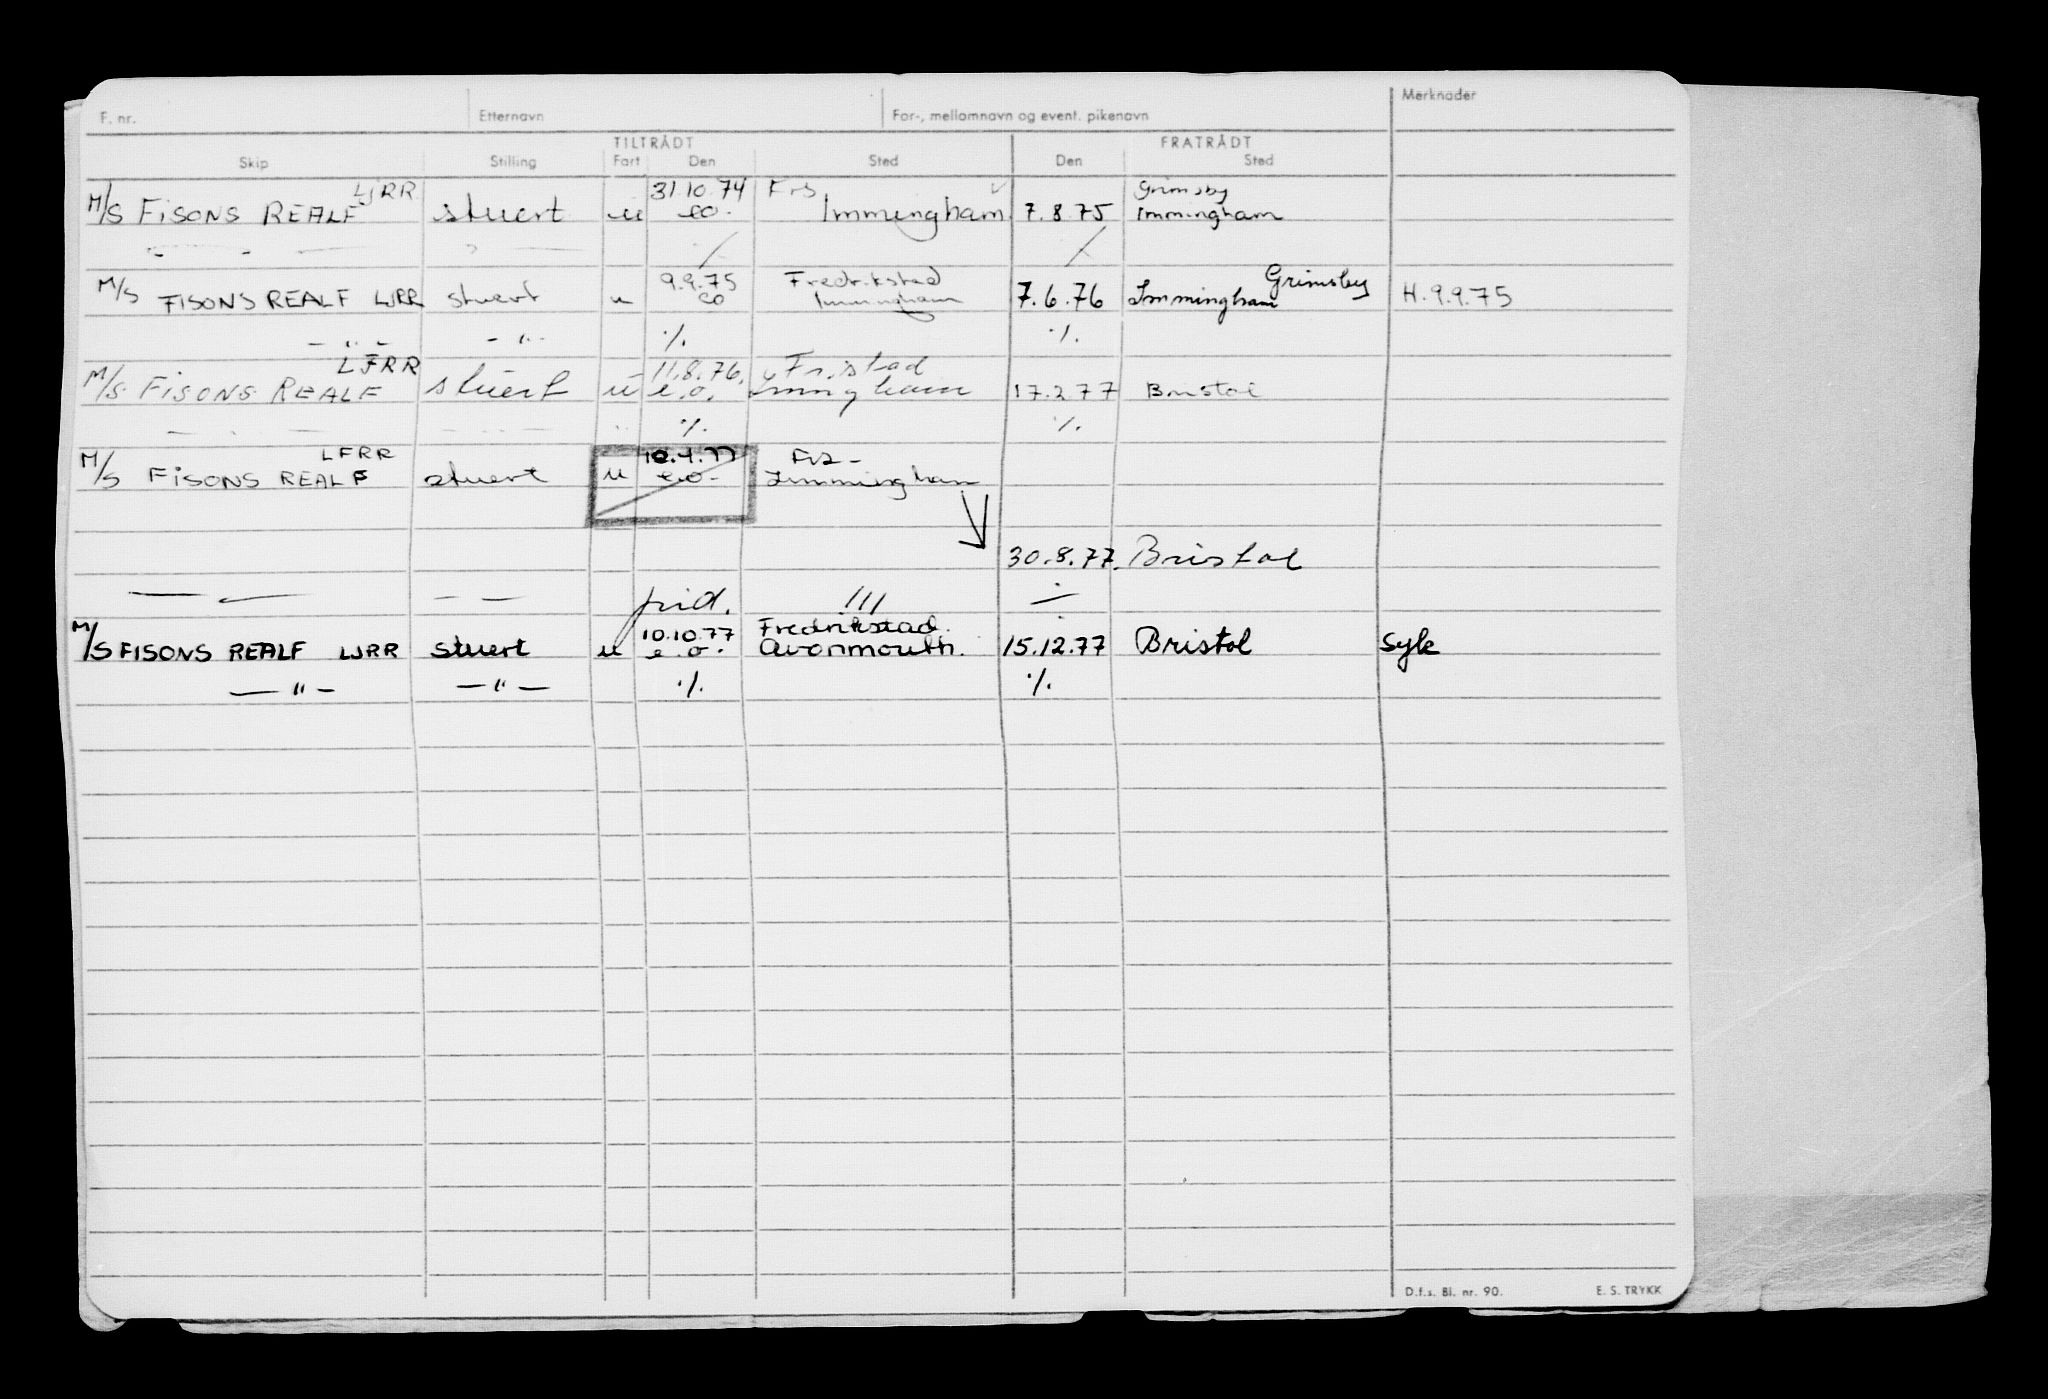 F. nr. Etternavn For-, mellomnavn og event. pikenavn Merknader
TILTRÅDT FRATRÅDT
Skip Stilling Fart Den Sted Den Sted
LJRR 31.10.74 Frs Grimsby
M/S FISONS REALF stuert u eo. Immingham 7.8.75 Immingham
9.9.75 Fredrikstad Grimsby
M/S FISONS REALF LJRR stuert u eo Immingham 7.6.76 Immingham H.9.9.75
— " — — " — ·/. ·/.
LFRR 11.8.76. Fr.stad
M/S FISONS REALF stuert u e.o. Immingham 17.2.77 Bristol
·/. ·/.
LFRR 10.4.77
M/S FISONS REALF stuert u e.o. Immingham
30.8.77. Bristol
10.10.77 Fredrikstad.
M/S FISONS REALF LJRR stuert u e.o. Avonmouth. 15.12.77 Bristol Syk
— " — — " — ·/. ·/.
D.f.s. Bl. nr. 90. E. S. TRYKK